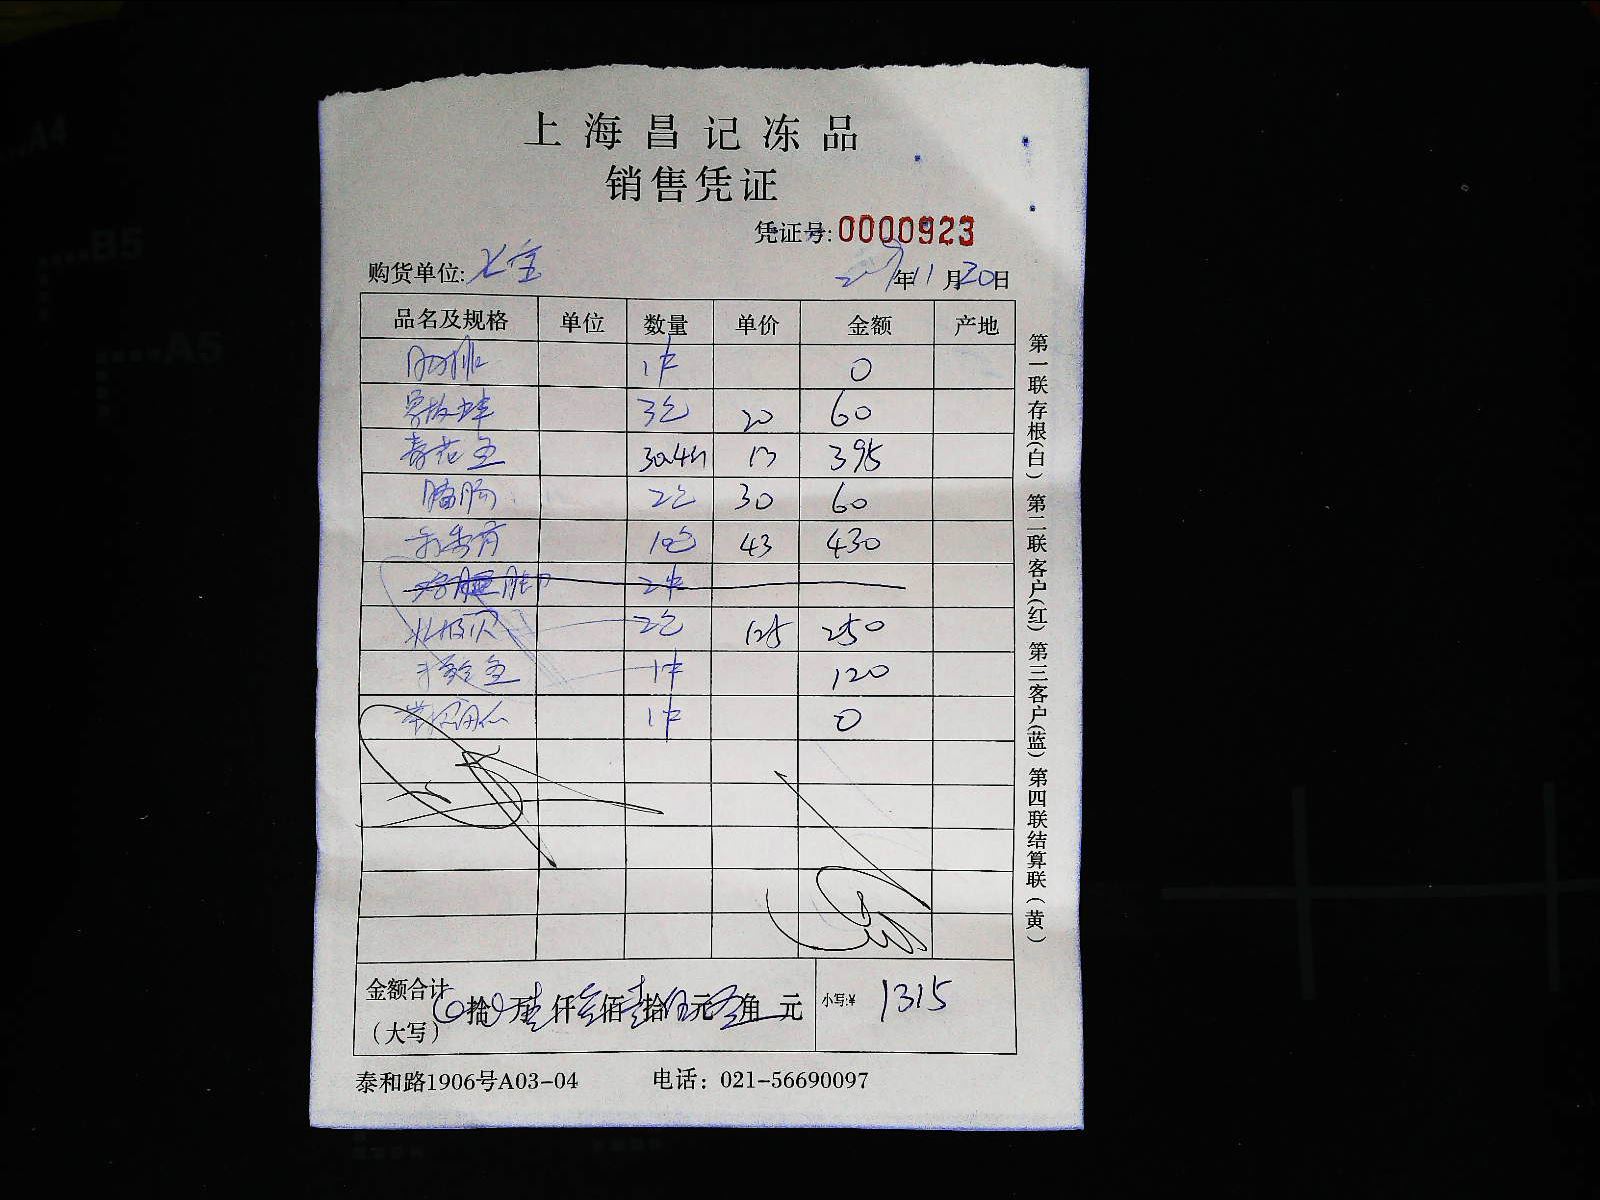 上海昌记冻品
销售凭证
凭证号:0000923
购货单位:七宝 年11月20日
品名及规格 单位 数量 单价 金额 产地
1件 0
3包 20 60
青花鱼 30.4斤 13 395
腊肠 2包 30 60
10包 43 430
2件
北极贝 2包 125 250
1件 120
1件 0
金额合计 拾 万壹仟叁佰壹拾伍元 角 元 小写:¥ 1315
(大写)
泰和路1906号A03-04 电话：021-56690097
第一联存根(白) 第二联客户(红) 第三客户(蓝) 第四联结算联(黄)